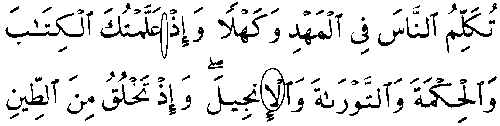 تُكَلِّمُ ٱلنَّاسَ فِى ٱلْمَهْدِ وَكَهْلًا وَإِذْ عَلَّمْتُكَ ٱلْكِتَٰبَ
وَٱلْحِكْمَةَ وَٱلتَّوْرَىٰةَ وَٱلْإِنجِيلَ ۖ وَإِذْ تَخْلُقُ مِنَ ٱلطِّينِ